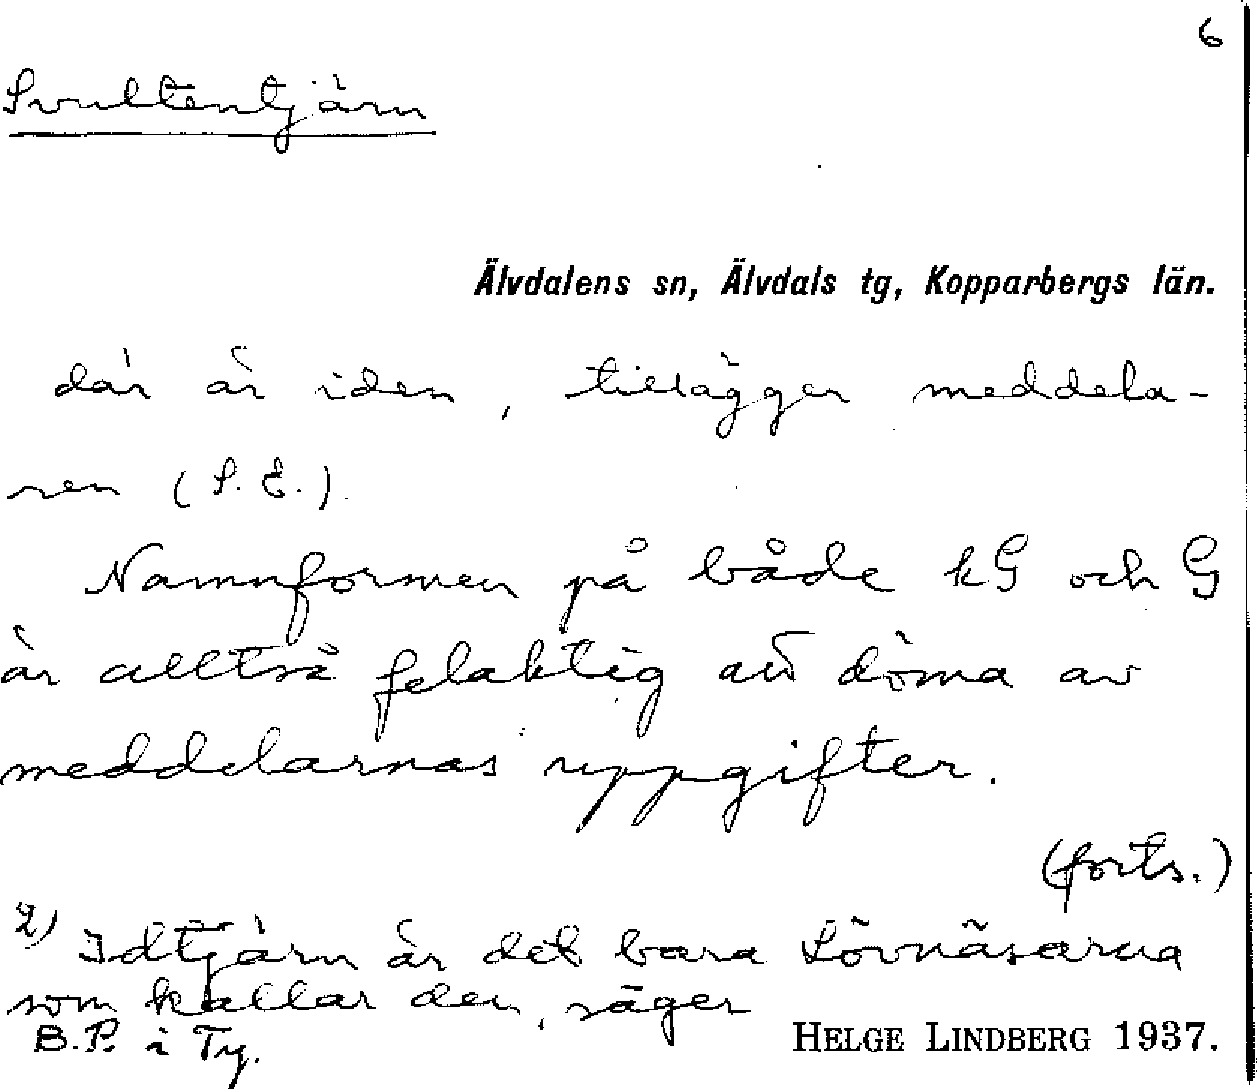 6
Svultentjärn
Älvdalens sn, Älvdals tg, Kopparbergs län.
där är iden, tillägger meddela-
ren (S. E.).
Namnformen på både kG och G
är alltså felaktig att döma av
meddelarnas uppgifter.
(forts.)
2) Idtjärn är det bara Lövnäsarna
som kallar den, säger
B.P. i Ty.
HELGE LINDBERG 1937.